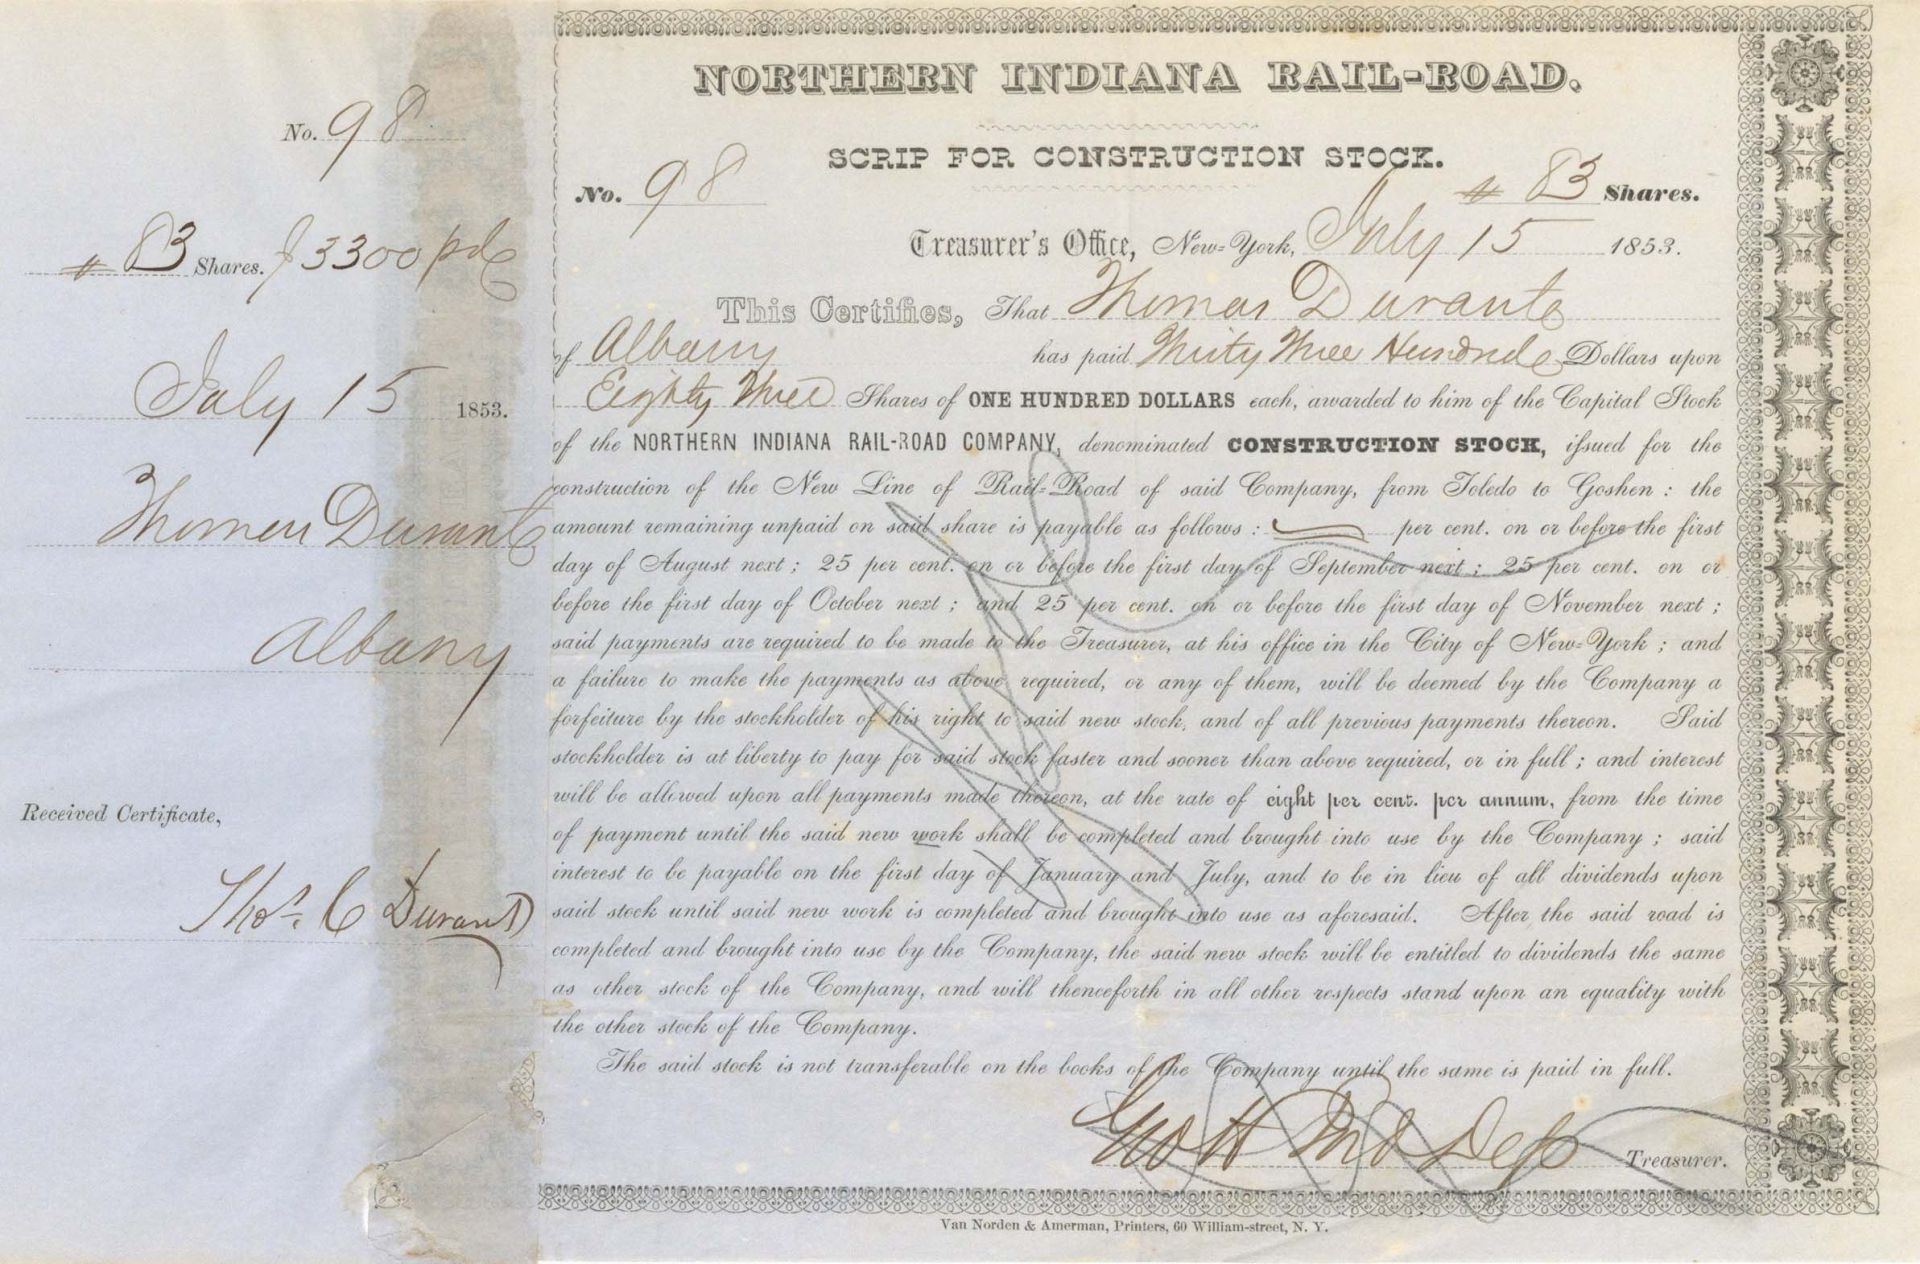 No. 98
83 Shares. $3300 pd
July 15 1853.
Thomas Durant
Albany
Received Certificate,
Thos. C Durant
NORTHERN INDIANA RAIL-ROAD.
SCRIP FOR CONSTRUCTION STOCK.
No. 98 83 Shares.
Treasurer's Office, New-York, July 15 1853.
This Certifies, That Thomas Durant
of Albany has paid Thirty Three Hundred Dollars upon
Eighty Three Shares of ONE HUNDRED DOLLARS each, awarded to him of the Capital Stock
of the NORTHERN INDIANA RAIL-ROAD COMPANY, denominated CONSTRUCTION STOCK, issued for the
construction of the New Line of Rail-Road of said Company, from Toledo to Goshen : the
amount remaining unpaid on said share is payable as follows : per cent. on or before the first
day of August next ; 25 per cent. on or before the first day of September next ; 25 per cent. on or
before the first day of October next ; and 25 per cent. on or before the first day of November next ;
said payments are required to be made to the Treasurer, at his office in the City of New-York ; and
a failure to make the payments as above required, or any of them, will be deemed by the Company a
forfeiture by the stockholder of his right to said new stock, and of all previous payments thereon. Said
stockholder is at liberty to pay for said stock faster and sooner than above required, or in full ; and interest
will be allowed upon all payments made thereon, at the rate of eight per cent. per annum, from the time
of payment until the said new work shall be completed and brought into use by the Company ; said
interest to be payable on the first day of January and July, and to be in lieu of all dividends upon
said stock until said new work is completed and brought into use as aforesaid. After the said road is
completed and brought into use by the Company, the said new stock will be entitled to dividends the same
as other stock of the Company, and will thenceforth in all other respects stand upon an equality with
the other stock of the Company.
The said stock is not transferable on the books of the Company until the same is paid in full.
Treasurer.
Van Norden & Amerman, Printers, 60 William-street, N. Y.